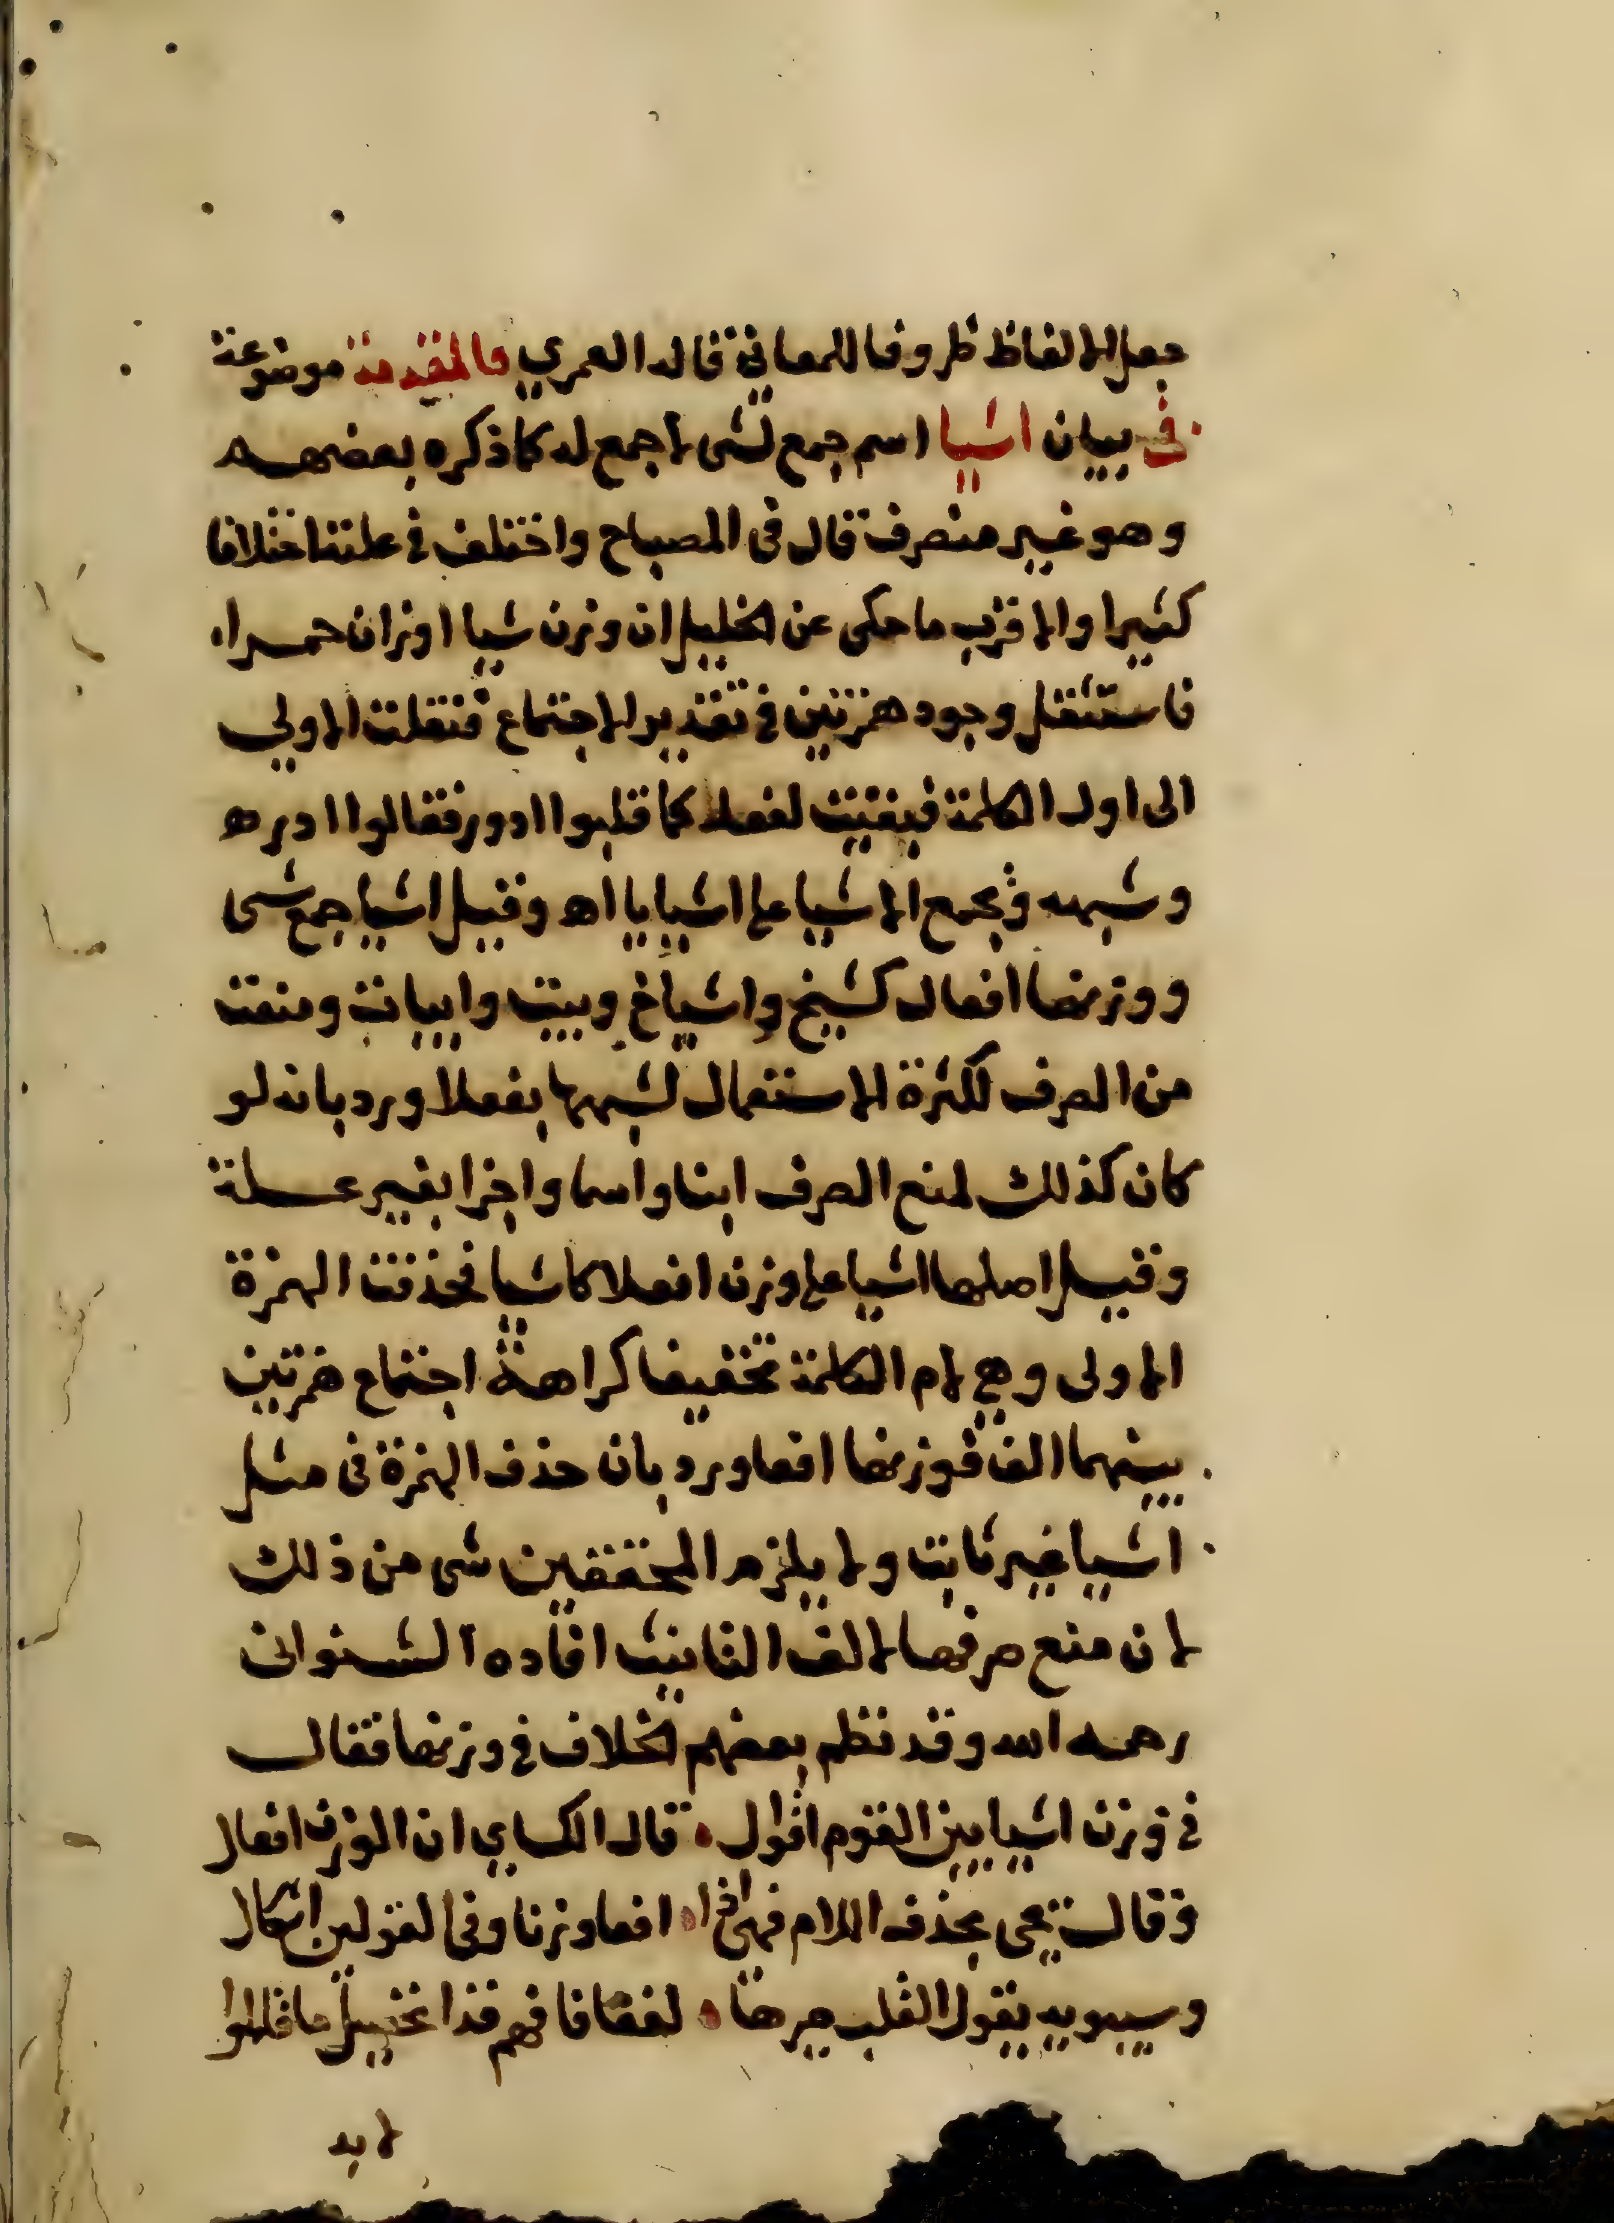 جعل الالفاظ ظروفا للمعاني قاله العمري فالمقدمة موضوعة
في بيان اشيا اسم جمع لشي لا جمع له كما ذكره بعضهم
وهو غير منصرف قال في المصباح واختلف في علته اختلافا
كثيرا والاقرب ما حكى عن الخليل ان وزن شيا اوزان حمراء
فاستثقل وجود همزتين في تقدير الاجتماع فنقلت الاولي
الى اول الكلمة فبقيت لفعلا كما قلبوا ادور فقالوا ادر ه
وشبهه وتجمع الاشيا على اشيايا اه وقيل اشيا جمع شي
ووزنها افعال كشيخ واشياخ وبيت وابيات ومنعت
من الصرف لكثرة الاستعمال لشبهها بفعلا ورد بانه لو
كان كذلك لمنع الصرف ابنا واسما واجزا بغير علة
وقيل اصلها اشيا على وزن افعلا كاشيا فحذفت الهمزة
الاولى وهي لام الكلمة تخفيفا كراهة اجتماع همزتين
بينهما الف فوزنها افعا ورد بان حذف الهمزة في مثل
اشيا غير ثابت ولا يلزم المحققين شي من ذلك
لان منع صرفها لالف التانيث افاده الشنواني
رحمه الله وقد نظم بعضهم الخلاف في وزنها فقال
في وزن اشيا بين القوم اقوال قال الكساي ان الوزن افعال
وقال يحيى بحذف اللام فهي اذا افعا وزنا وفي القولين اشكال
وسيبويه يقول القلب صرها لفعا فافهم فذا تحصيل ما قالوا
لابد